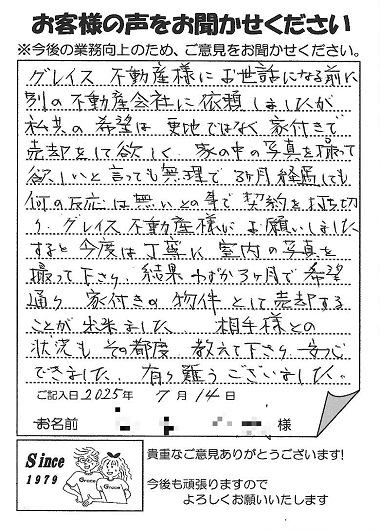 お客様の声をお聞かせください
※今後の業務向上のため、ご意見をお聞かせください。
グレイス不動産様にお世話になる前に
別の不動産会社に依頼しましたが
私共の希望は更地ではなく家付きで
売却をして欲しく家の中の写真を撮って
欲しいと言っても無理で3ヶ月経過しても
何の反応は無いとの事で契約を打ち切
り、グレイス不動産様にお願いしました
すると今度は丁寧に室内の写真を
撮って下さり、結果わずか3ヶ月で希望
通り家付きの物件として売却する
ことが出来ました。相手様との
状況もその都度教えて下さり安心
できました。有り難うございました。
ご記入日2025年7月14日
お名前 様
Since
1979
Grace
Grace
貴重なご意見ありがとうございます!
今後も頑張りますので
よろしくお願いいたします